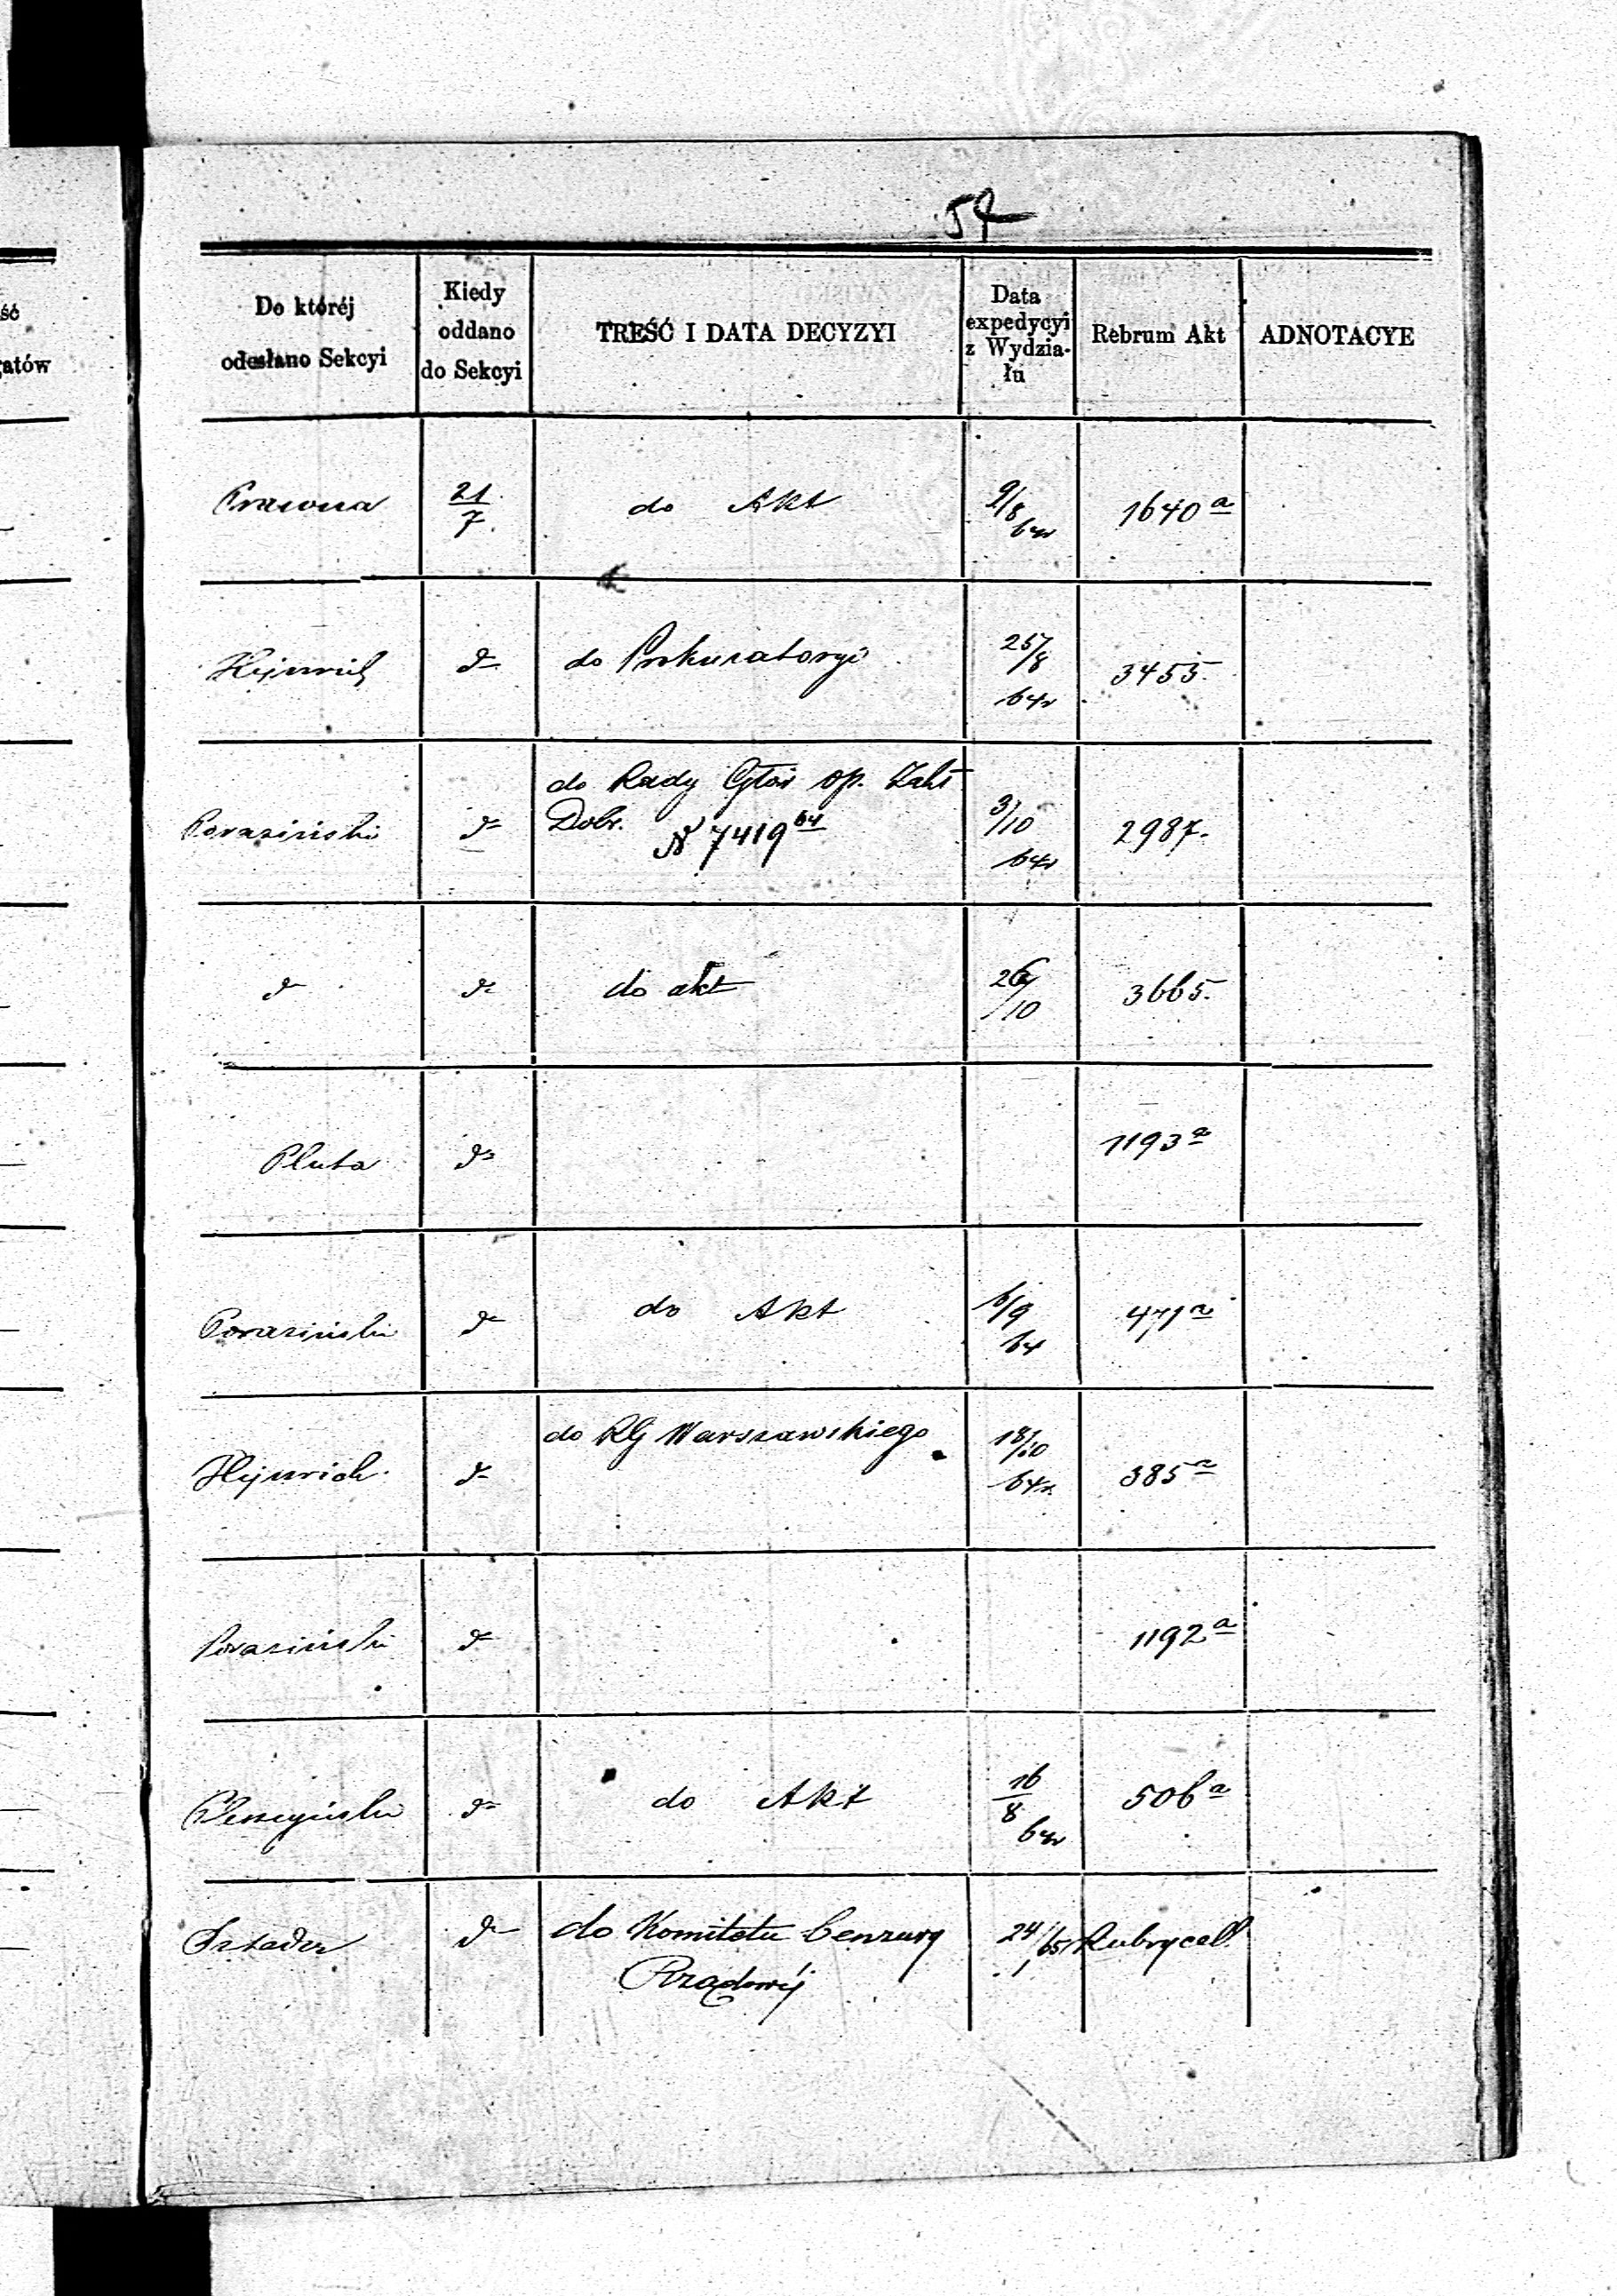 57
ść
gatów
Do któréj odesłano Sekcyi
Kiedy oddano do Sekcyi
TREŚĆ I DATA DECYZYI
Data expedycyi z Wydzia-łu
Rebrum Akt
ADNOTACYE
Prawna 21/7. do Akt 9/8 64r 1640 a
Hejnrich do do Prokuratoryi 25/8 64r 3455.
Poraziński do do Rady Głów op. Zakł
Dobr. N 7419 64 3/10 64r 2987.
do do do akt 26/10 3665.
Pluta do 1193 a
Poraziński do do Akt 6/9 64 471 a
Hejnrich do do RG Warszawskiego 18/10 64r. 385 a
Porazinski do 1192 a
do do Akt 16/8 64r 506 a
Sztader do do Komitetu Cenzury 24/1 65 Rubrycell.
Rządowéj